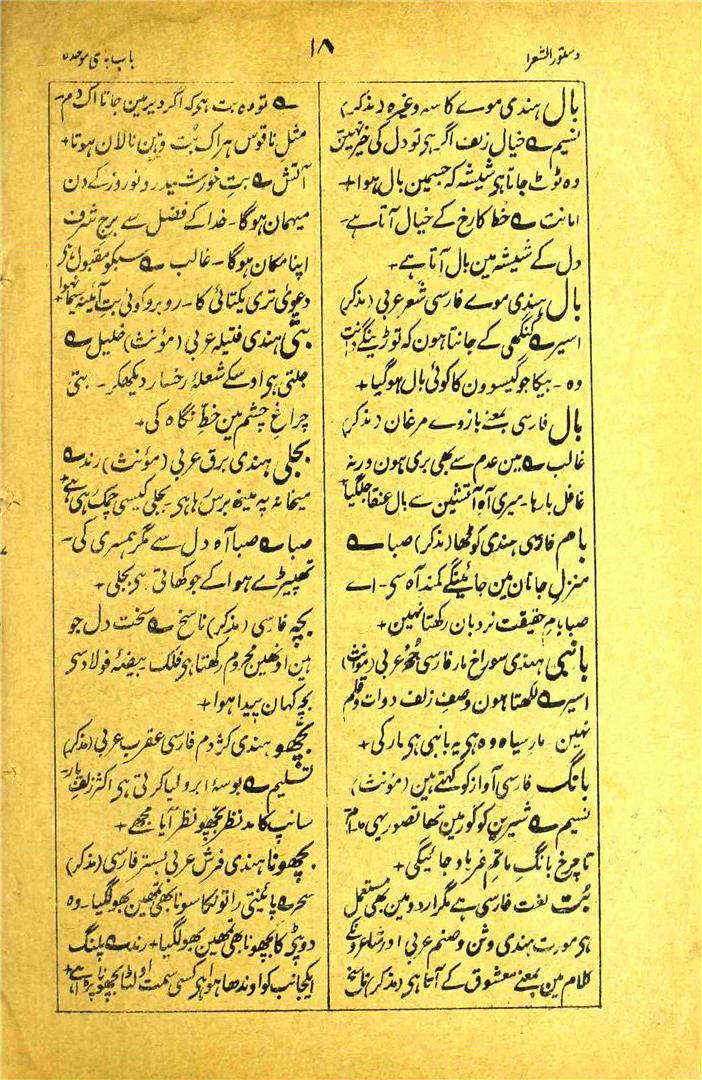 دستور الشعرا
۱۸
باب بہ ی موحدہ
بال ہندی موے کاسہ وغیرہ (مذکر)
نسیم ؎ خیال زلف اگر ہی تو دل کی خیر نہین
وہ ٹوٹ جاتا ہی شیشہ کہ جسمین بال ہوا +
امانت ؎ خط کا رخ کے خیال آتا ہے۔
دل کے شیشہ مین بال آتا ہے +
بال ہندی موے فارسی شعر عربی (مذکر)
اسیر ؎ کنگھی کے جانتا ہون کہ توڑینگے دانت
وہ - بیکا جو گیسوون کا کوئی بال ہوگیا +
بال فارسی بمعنے بازوے مرغان (مذکر)
غالب ؎ مین عدم سے بھی پری ہون ورنہ
غافل بارہا - میری آہ آتشین سے بال عنقا جلگیا +
بام فارسی ہندی کوٹھا (مذکر) صبا ؎
منزل جانان مین جائینگے کمند آہ سی - اے
صبا بام حقیقت نردبان رکھتا نہین +
بانبی ہندی سوراخ مار فارسی جحر عربی (مؤنث)
اسیر ؎ لکھتا ہون وصف زلف دوات و قلم
نہین - مار سیاہ وہ ہی یہ بانبی ہی مار کی +
بانگ فارسی آواز کو کہتے ہین (مؤنث)
نسیم ؎ شیرین کو گور مین تھا تصور یہی مدام
تا چرخ بانگ ماتم فرہاد جائیگی +
بُت لغت فارسی ہے مگر اردو مین بھی مستعمل
ہی مورت ہندی وثن و صنم عربی اور شاعرونکے
کلام مین بمعنے معشوق کے آتا ہی (مذکر) ناسخ
؎ تو وہ بت ہی کہ اگر دیر مین جاتا اک دم۔
مثل ناقوس ہر اک بُت وہین نالان ہوتا +
آتش ؎ بت خورشید رو نوروز کے دن
میہمان ہوگا - خدا کے فضل سے برج شرف
اپنا مکان ہوگا - غالب ؎ سبکو مقبول ہی
دعویٰ تری یکتائی کا - روبرو کوئی بت آئینہ سیما نہوا +
بتی ہندی فتیلہ عربی (مؤنث) خلیل ؎
جلتی ہی اوسکے شعلۂ رخسار دیکھکر - بتی
چراغ چشم مین خط نگاہ کی +
بجلی ہندی برق عربی (مؤنث) رند ؎
میخانہ پہ مینھ برس رہا ہی بجلی کیسی چمک رہی ہے +
صبا ؎ صبا آہ دل سے مگر ہمسری کی۔
تھپیڑے ہوا کے جو کھاتی ہی بجلی +
بچہ فارسی (مذکر) ناسخ ؎ سخت دل جو
ہین اونھین محروم رکھتا ہی فلک بیضۂ فولاد سی
بچہ کہان پیدا ہوا +
بچھو ہندی کژدم فارسی عقرب عربی (مذکر)
تسلیم ؎ بوسۂ ابرو لیا کرتی ہی اکثر زلف یار۔
سانپ کا مد نظر بچھو نظر آیا مجھے +
بچھونا ہندی فرش عربی بستر فارسی (مذکر)
سحر ؎ پائنتی راتونکا سونا بھی تمھین بھولگیا - وہ
دوپٹی کا بچھونا بھی تمھین بھولگیا + رند ؎ پلنگ
ایکجانب کو اوندھا ہوا ہی کسی سمت اولٹا بچھونا پڑا ہے +